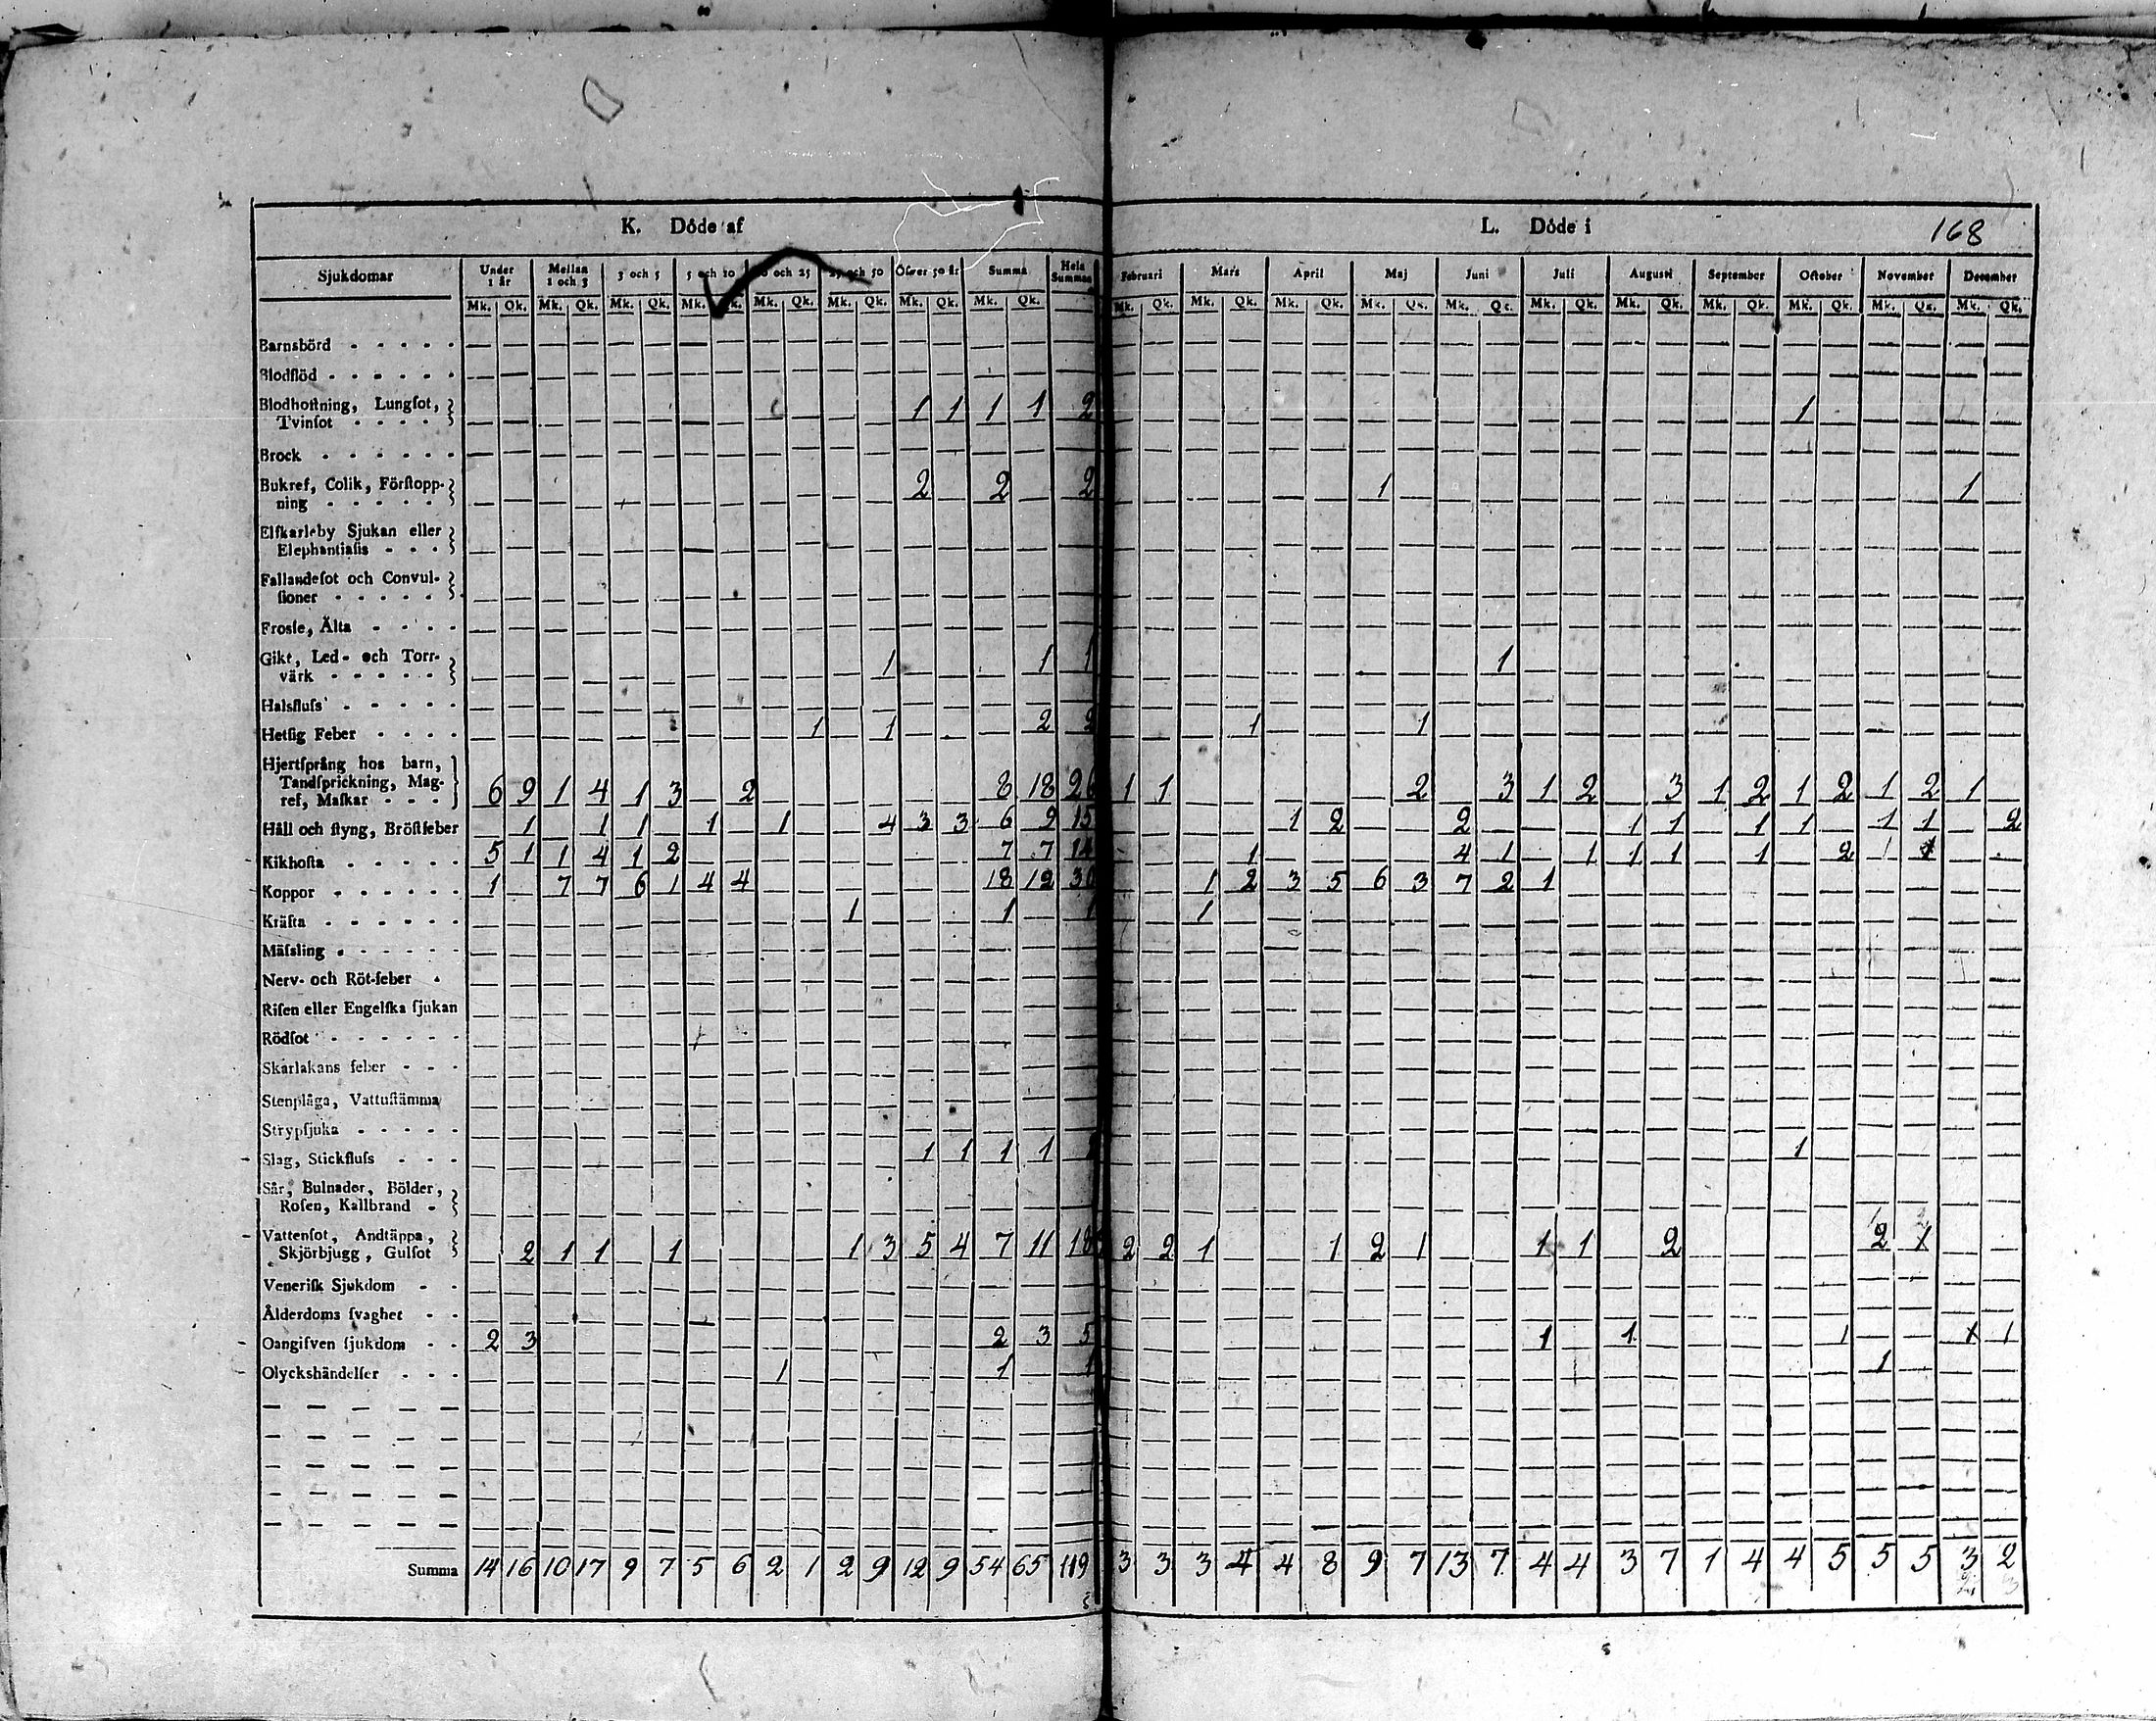 K. Döde af
L. Döde i 168
Sjukdomar Under 1 år Mellan 1 och 3 3 och 5 5 och 10 och 25 25 och 50 Öfver 50 år Summa Hela Summan Februari Mars April Maj Juni Juli Augusti September October November December
Mk. Qk. Mk. Qk. Mk. Qk. Mk. Qk. Mk. Qk. Mk. Qk. Mk. Qk. Mk. Qk. Mk. Qk. Mk. Qk. Mk. Qk. Mk. Qk. Mk. Qk. Mk. Qk. Mk. Qk. Mk. Qk. Mk. Qk. Mk. Qk. Mk. Qk.
Barnsbörd
Blodflöd
Blodhoſtning, Lungſot,
Tvinſot 1 1 1 1 2 1
Brock
Bukref, Colik, Förſtopp-
ning 2 2 2 1 1
Elfkarleby Sjukan eller
Elephantiaſis
Fallandeſot och Convul-
ſioner
Frosſe, Älta
Gikt, Led- och Torr-
värk 1 1 1 1
Halsfluſs
Hetſig Feber 1 1 2 2 1 1
Hjertſprång hos barn,
Tandſprickning, Mag-
ref, Maſkar 6 9 1 4 1 3 2 8 18 26 1 1 2 3 1 2 3 1 2 1 2 1 2 1
Håll och ſtyng, Bröſtfeber 1 1 1 1 1 4 3 3 6 9 15 1 2 2 1 1 1 1 1 1 2
Kikhoſta 5 1 1 4 1 2 7 7 14 1 4 1 1 1 1 1 2 1
Koppor 1 7 7 6 1 4 4 18 12 30 1 2 3 5 6 3 7 2 1
Kräfta 1 1 1 1
Mäſsling
Nerv- och Röt-feber
Riſen eller Engelſka ſjukan
Rödſot
Skarlakans feber
Stenplåga, Vattuſtämma
Strypſjuka
Slag, Stickfluſs 1 1 1 1 2 1
Sår, Bulnader, Bölder,
Roſen, Kallbrand
Vattenſot, Andtäppa,
Skjörbjugg, Gulſot 2 1 1 1 1 3 5 4 7 11 18 2 2 1 1 2 1 1 1 2 2
Veneriſk Sjukdom
Ålderdoms ſvaghet
Oangifven ſjukdom 2 3 2 3 5 1 1 1 1 1
Olyckshändelſer 1 1 1 1
Summa 14 16 10 17 9 7 5 6 2 1 2 9 12 9 54 65 119 3 3 3 4 4 8 9 7 13 7 4 4 3 7 1 4 4 5 5 5 3 2